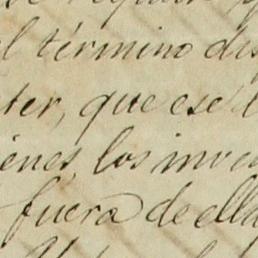 el término dis
ter, que ese
ienes, los inven
fuera de ella